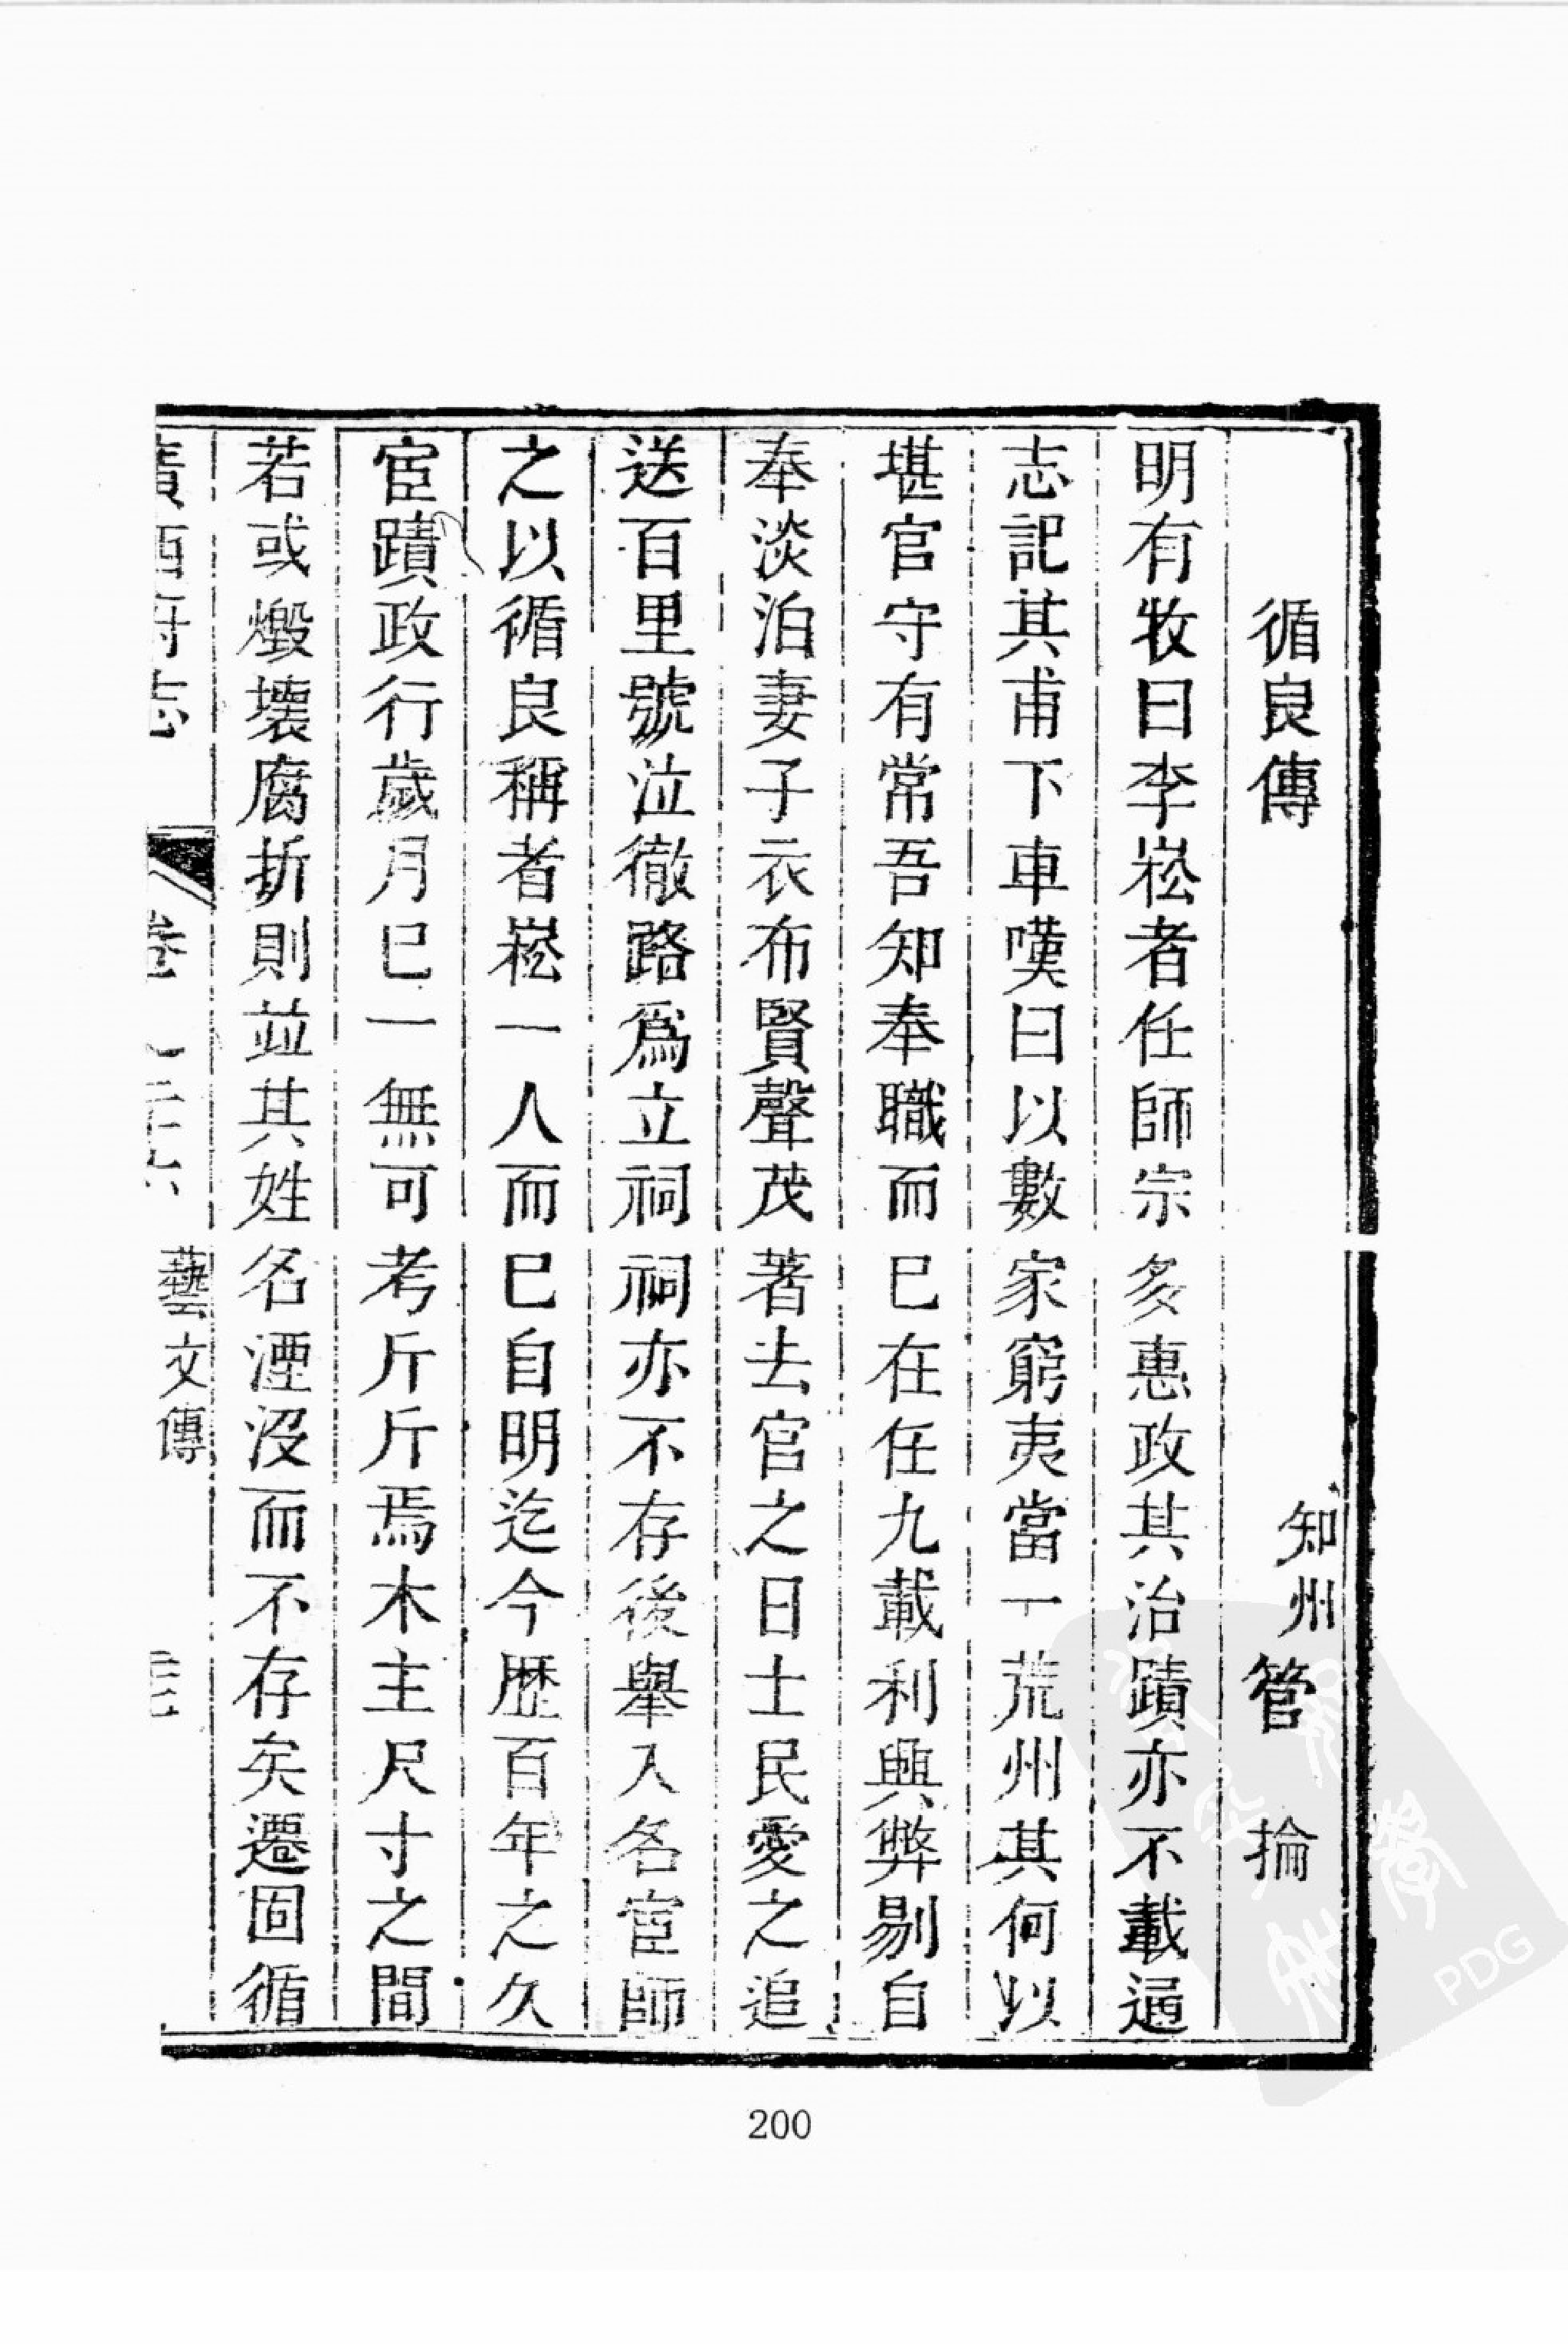 循良傳 知州管掄
明有牧曰李崧者任師宗多惠政其治蹟亦不載通
志記其甫下車嘆曰以數家窮夷當一荒州其何以
堪官守有常吾知奉職而巳在任九載利興弊剔自
奉淡泊妻子衣布賢聲茂著去官之日士民愛之追
送百里號泣徹路爲立祠祠亦不存後舉入名宦師
之以循良稱者崧一人而巳自明迄今歴百年之久
宦蹟政行歲月巳一無可考斤斤焉木主尺寸之間
若或燬壞腐折則並其姓名湮沒而不存矣遷固循
廣西府志 卷二十六 藝文傳
200
PDG